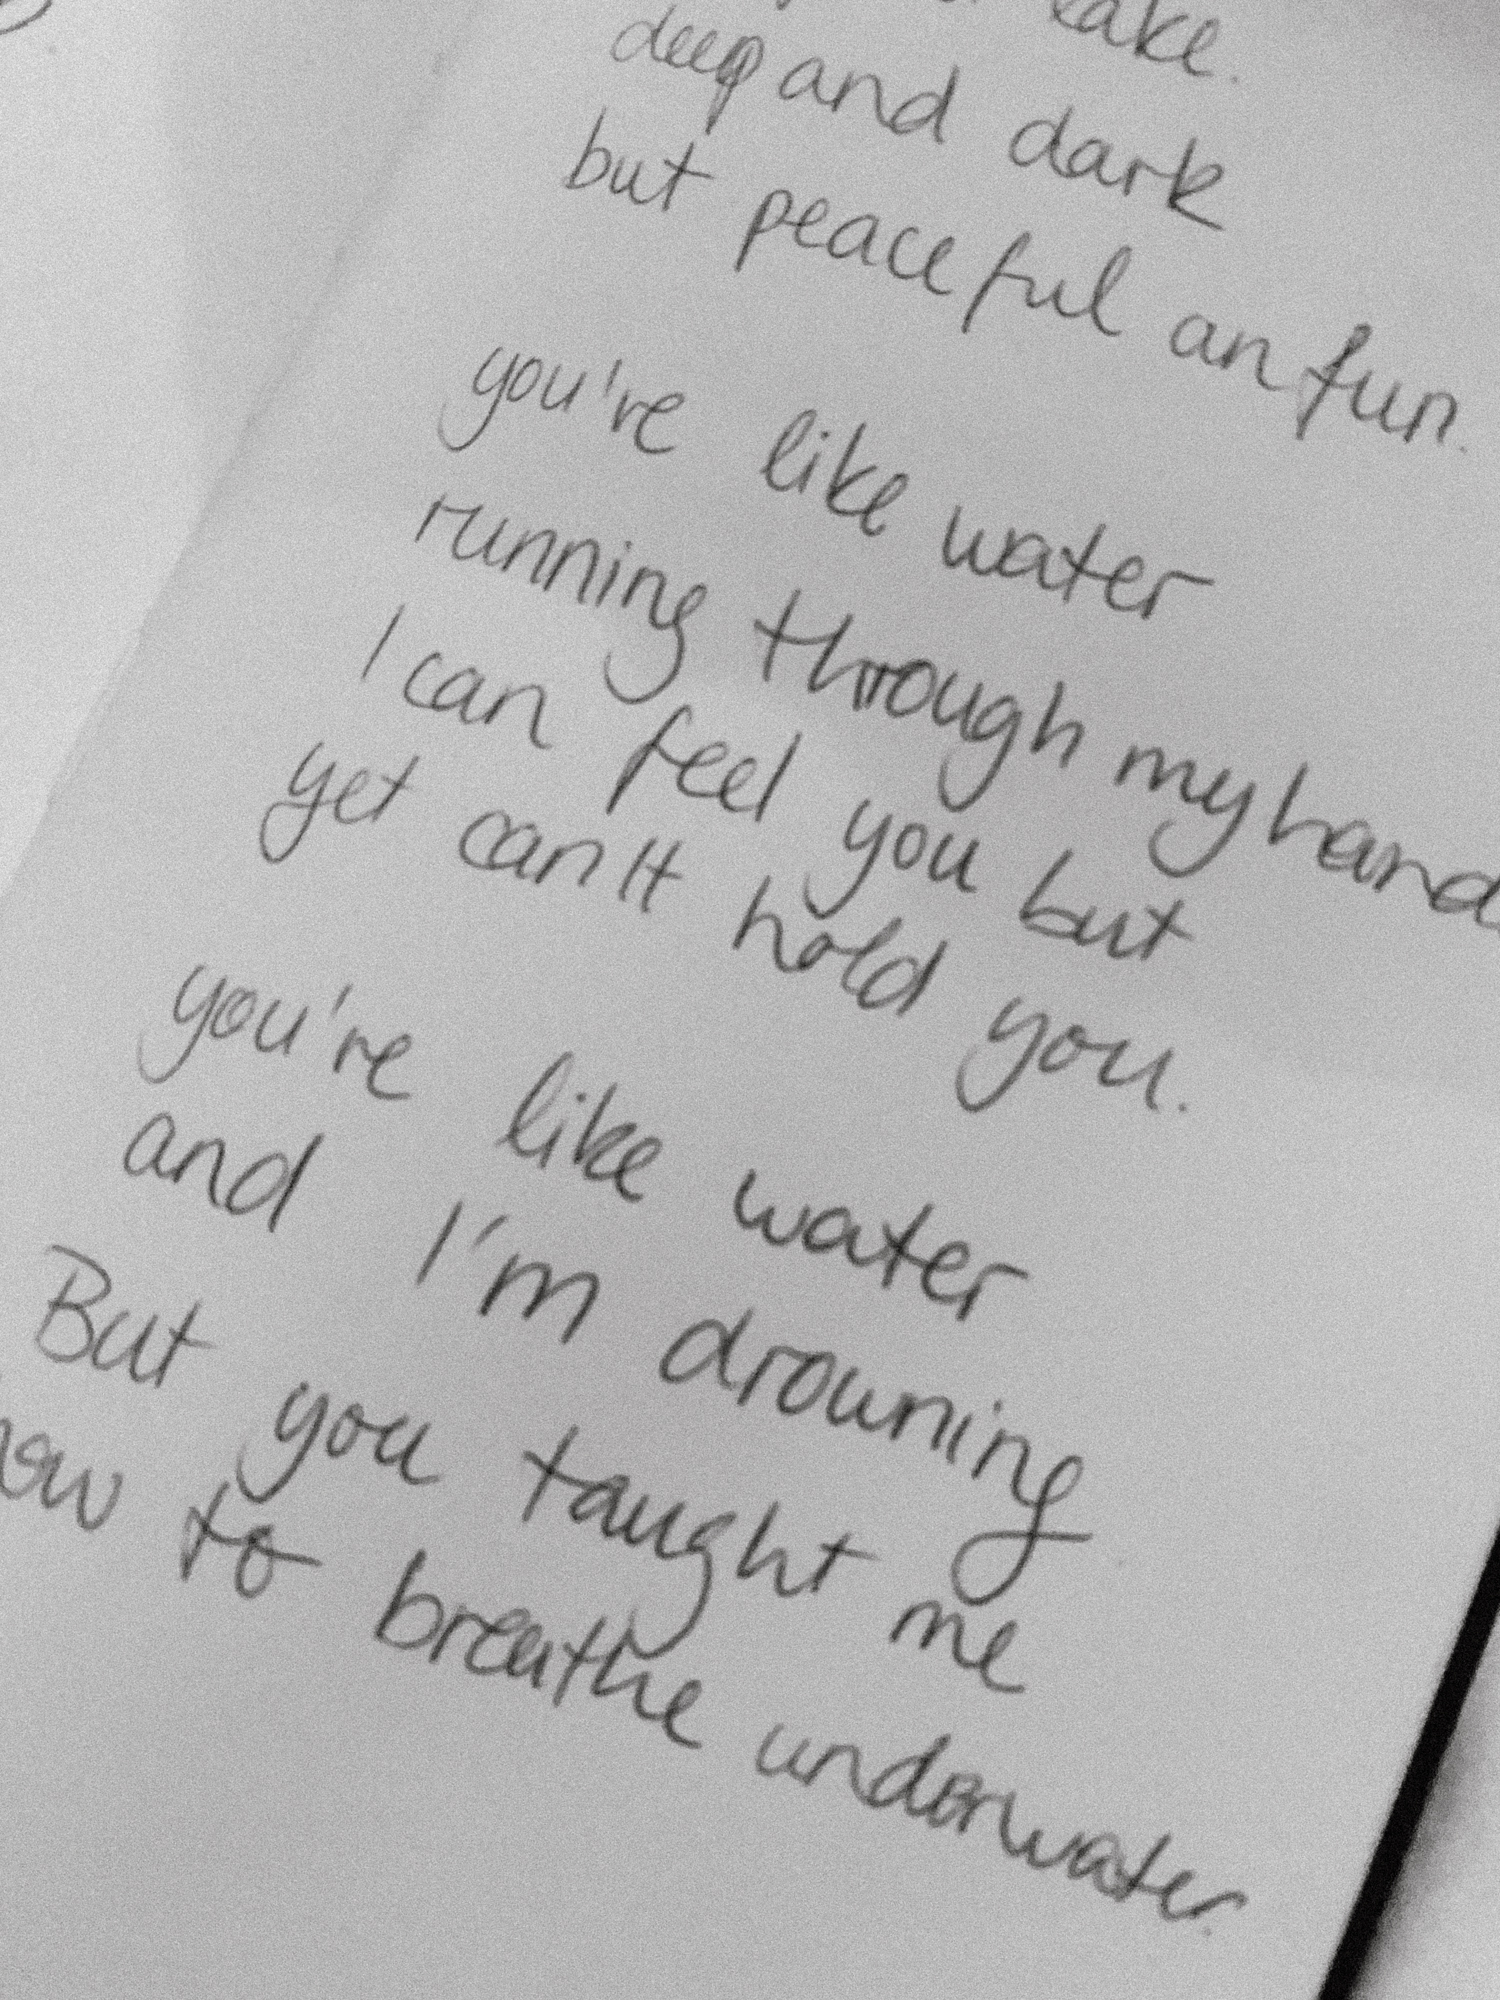 lake.
deep and dark
but peaceful an fun.
you're like water
running through my hand
I can feel you but
yet can't hold you.
you're like water
and I'm drowning
But you taught me
how to breathe underwater.